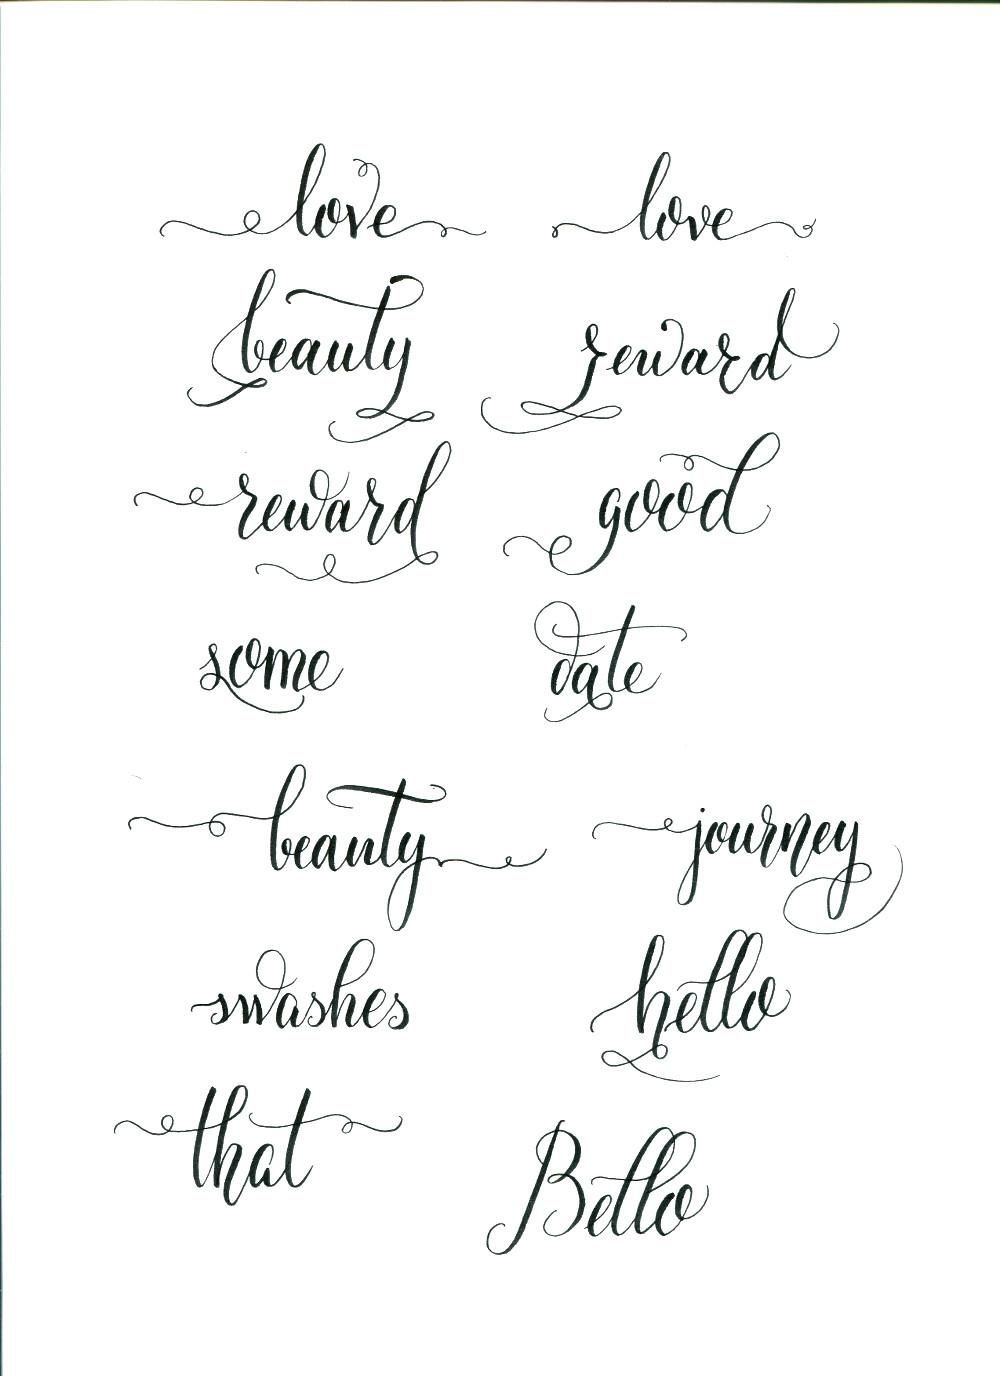 love love
beauty reward
reward good
some date
beauty journey
swashes hello
that Bello